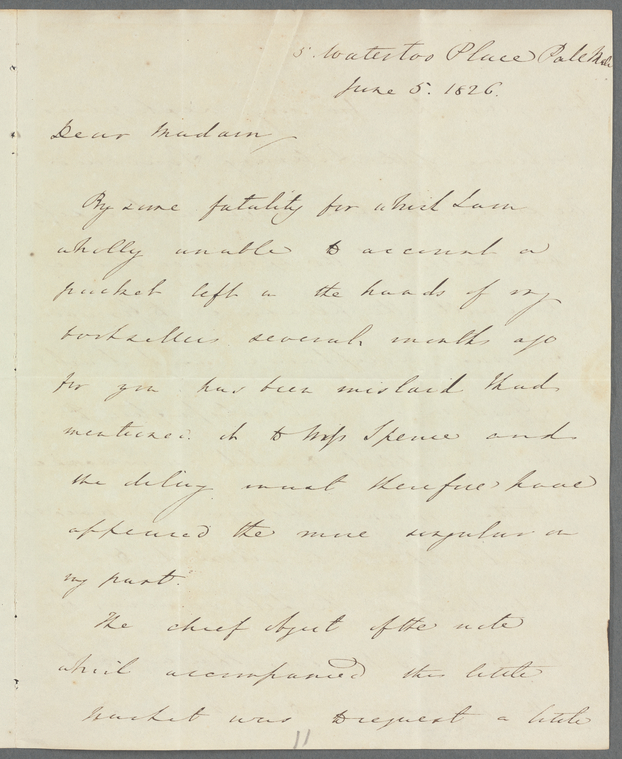 5 Waterloo Place Pale Mall
June 5. 1826.
Dear Madam
By some fatality for which I am
wholly unable to account a
packet left in the hands of my
booksellers several months ago
for you has been mislaid I had
mentioned it to Miss Spence and
the delay must therefore have
appeared the more singular on
my part.
The chief object of the note
which accompanied this little
packet was to request a little